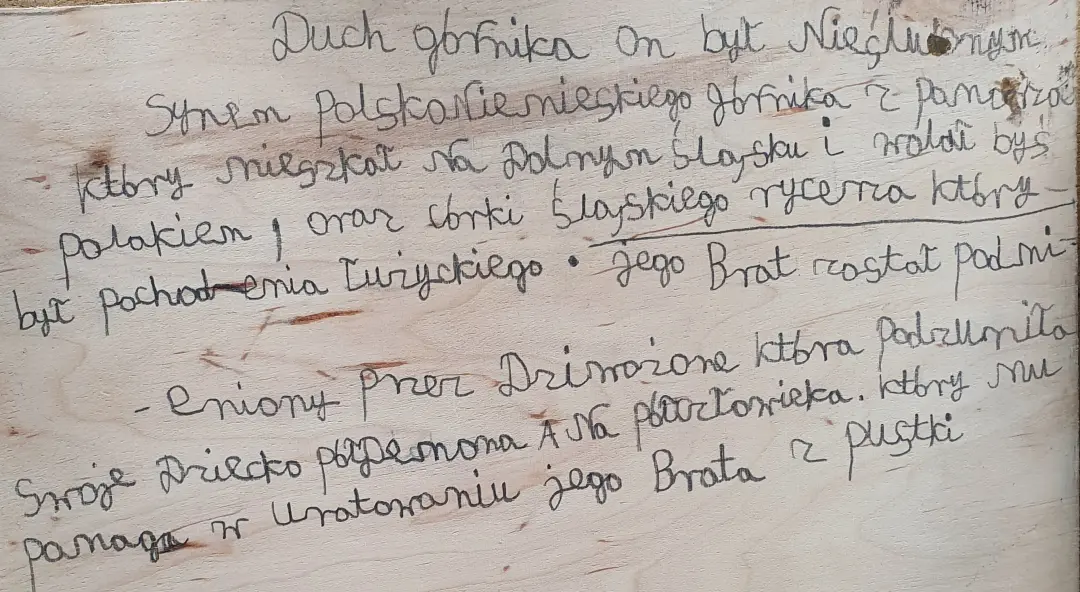 Duch górnika On był Nieślubnym
Synem polskoNiemieskiego górnika z
który mieszkał Na Dolnym śląsku i wolał być
polakiem, oraz córki śląskiego rycerza który
był pochodzenia Łużyckiego. jego Brat został podmi-
- eniony przez Dziwożone która podrzuniła
Swoje Dziecko półDemona A Na półczłowieka. który mu
pomaga w Uratowaniu jego Brata z pustki